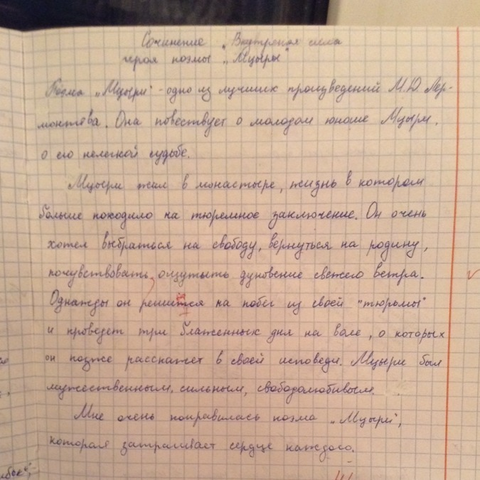 Сочинение „Внутренняя сила
героя поэмы „Мцыри"
Поэма „Мцыри" - одно из лучших произведений М.Ю. Лер-
монтова. Она повествует о молодом юноше Мцыри,
о его нелегкой судьбе.
Мцыри жил в монастыре, жизнь в котором
больше походило на тюремное заключение. Он очень
хотел выбраться на свободу, вернуться на родину,
почувствовать, ощутыть дуновение свежего ветра.
Однажды он решится на побег из своей "тюрьмы"
и проведет три блаженных дня на воле, о которых
он позже расскажет в своей исповеди. Мцыри был
мужественным, сильным, свободолюбивым.
Мне очень понравилась поэма „Мцыри",
которая затрагивает сердце каждого.